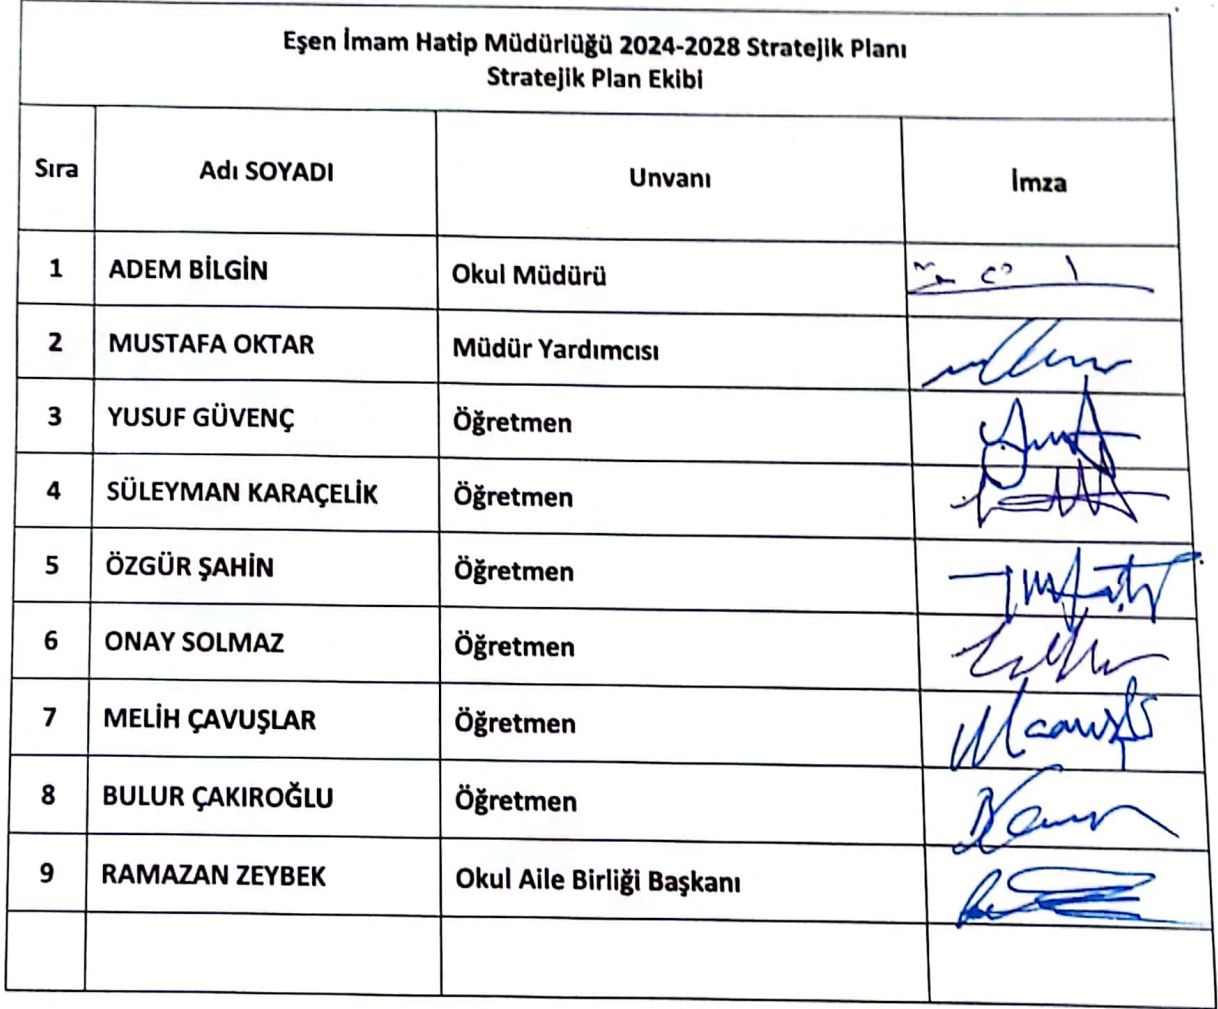 Eşen İmam Hatip Müdürlüğü 2024-2028 Stratejik Planı
Stratejik Plan Ekibi
Sıra Adı SOYADI Unvanı İmza
1 ADEM BİLGİN Okul Müdürü
2 MUSTAFA OKTAR Müdür Yardımcısı
3 YUSUF GÜVENÇ Öğretmen
4 SÜLEYMAN KARAÇELİK Öğretmen
5 ÖZGÜR ŞAHİN Öğretmen
6 ONAY SOLMAZ Öğretmen
7 MELİH ÇAVUŞLAR Öğretmen
8 BULUR ÇAKIROĞLU Öğretmen
9 RAMAZAN ZEYBEK Okul Aile Birliği Başkanı